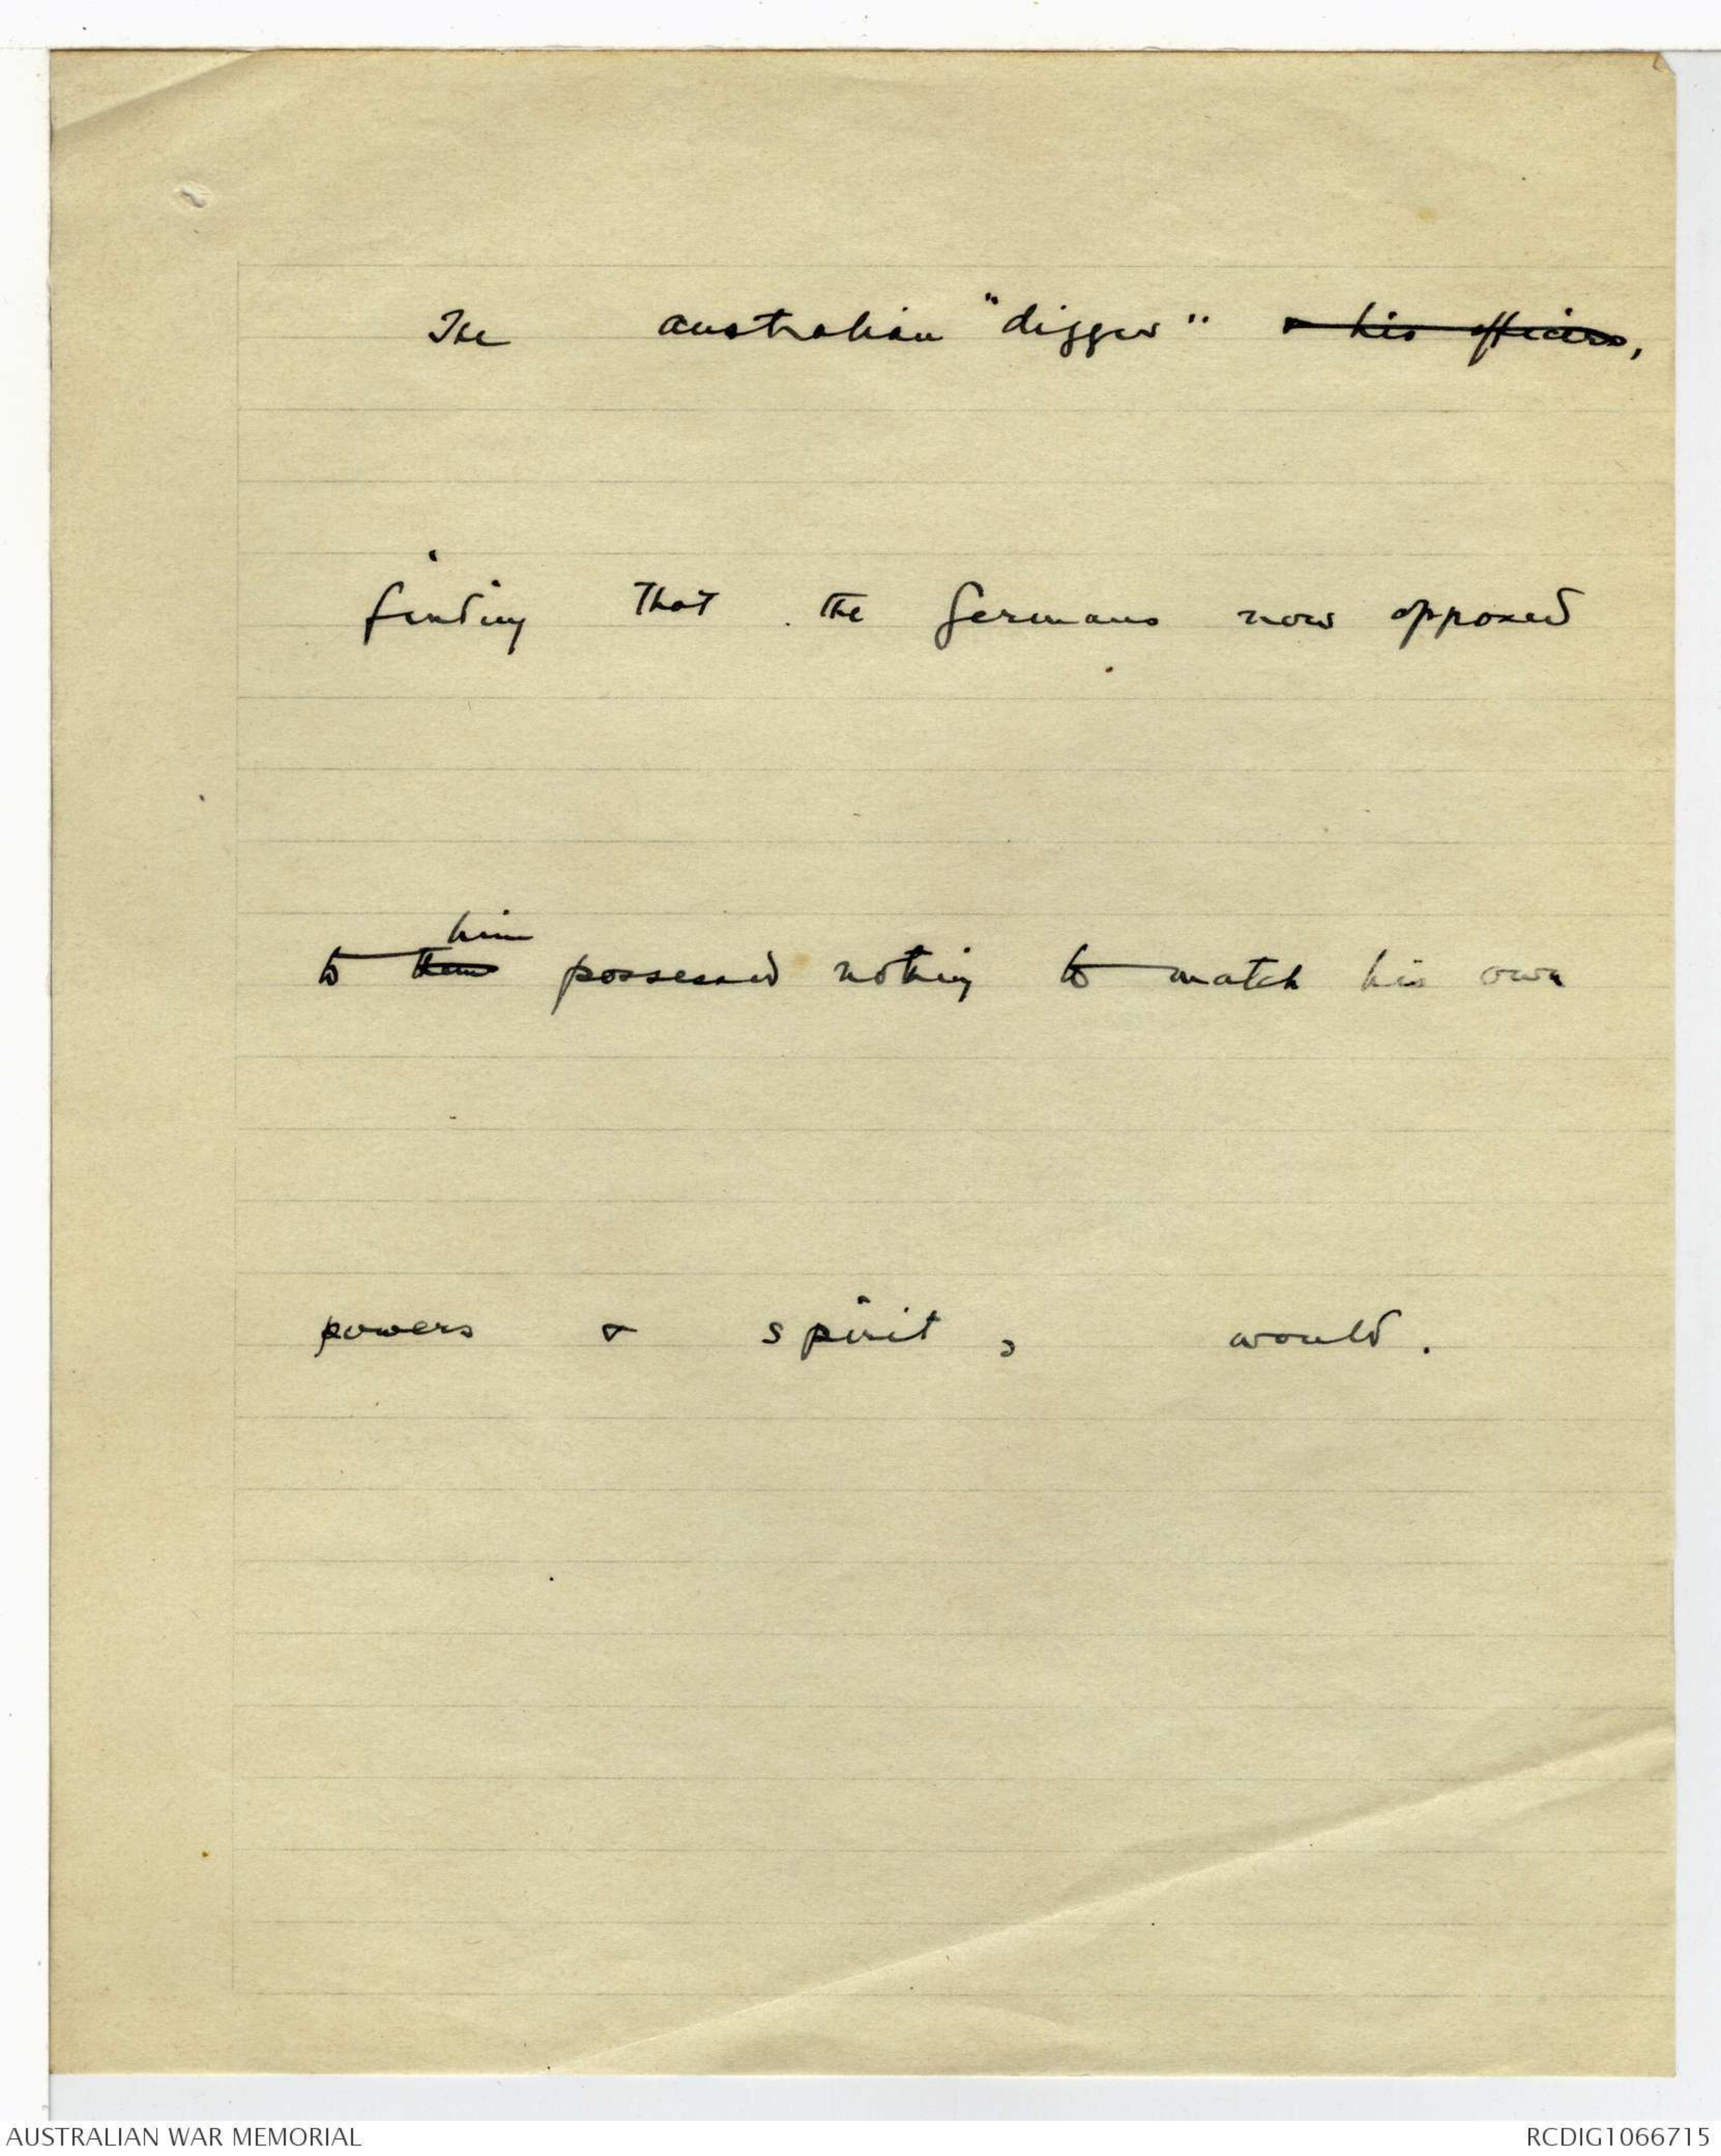 The australian "digger" & his officers,
finding that the Germans now opposed
him
to them possessed nothing to match his own
powers & spirit, would.
AUSTRALIAN WAR MEMORIAL RCDIG1066715